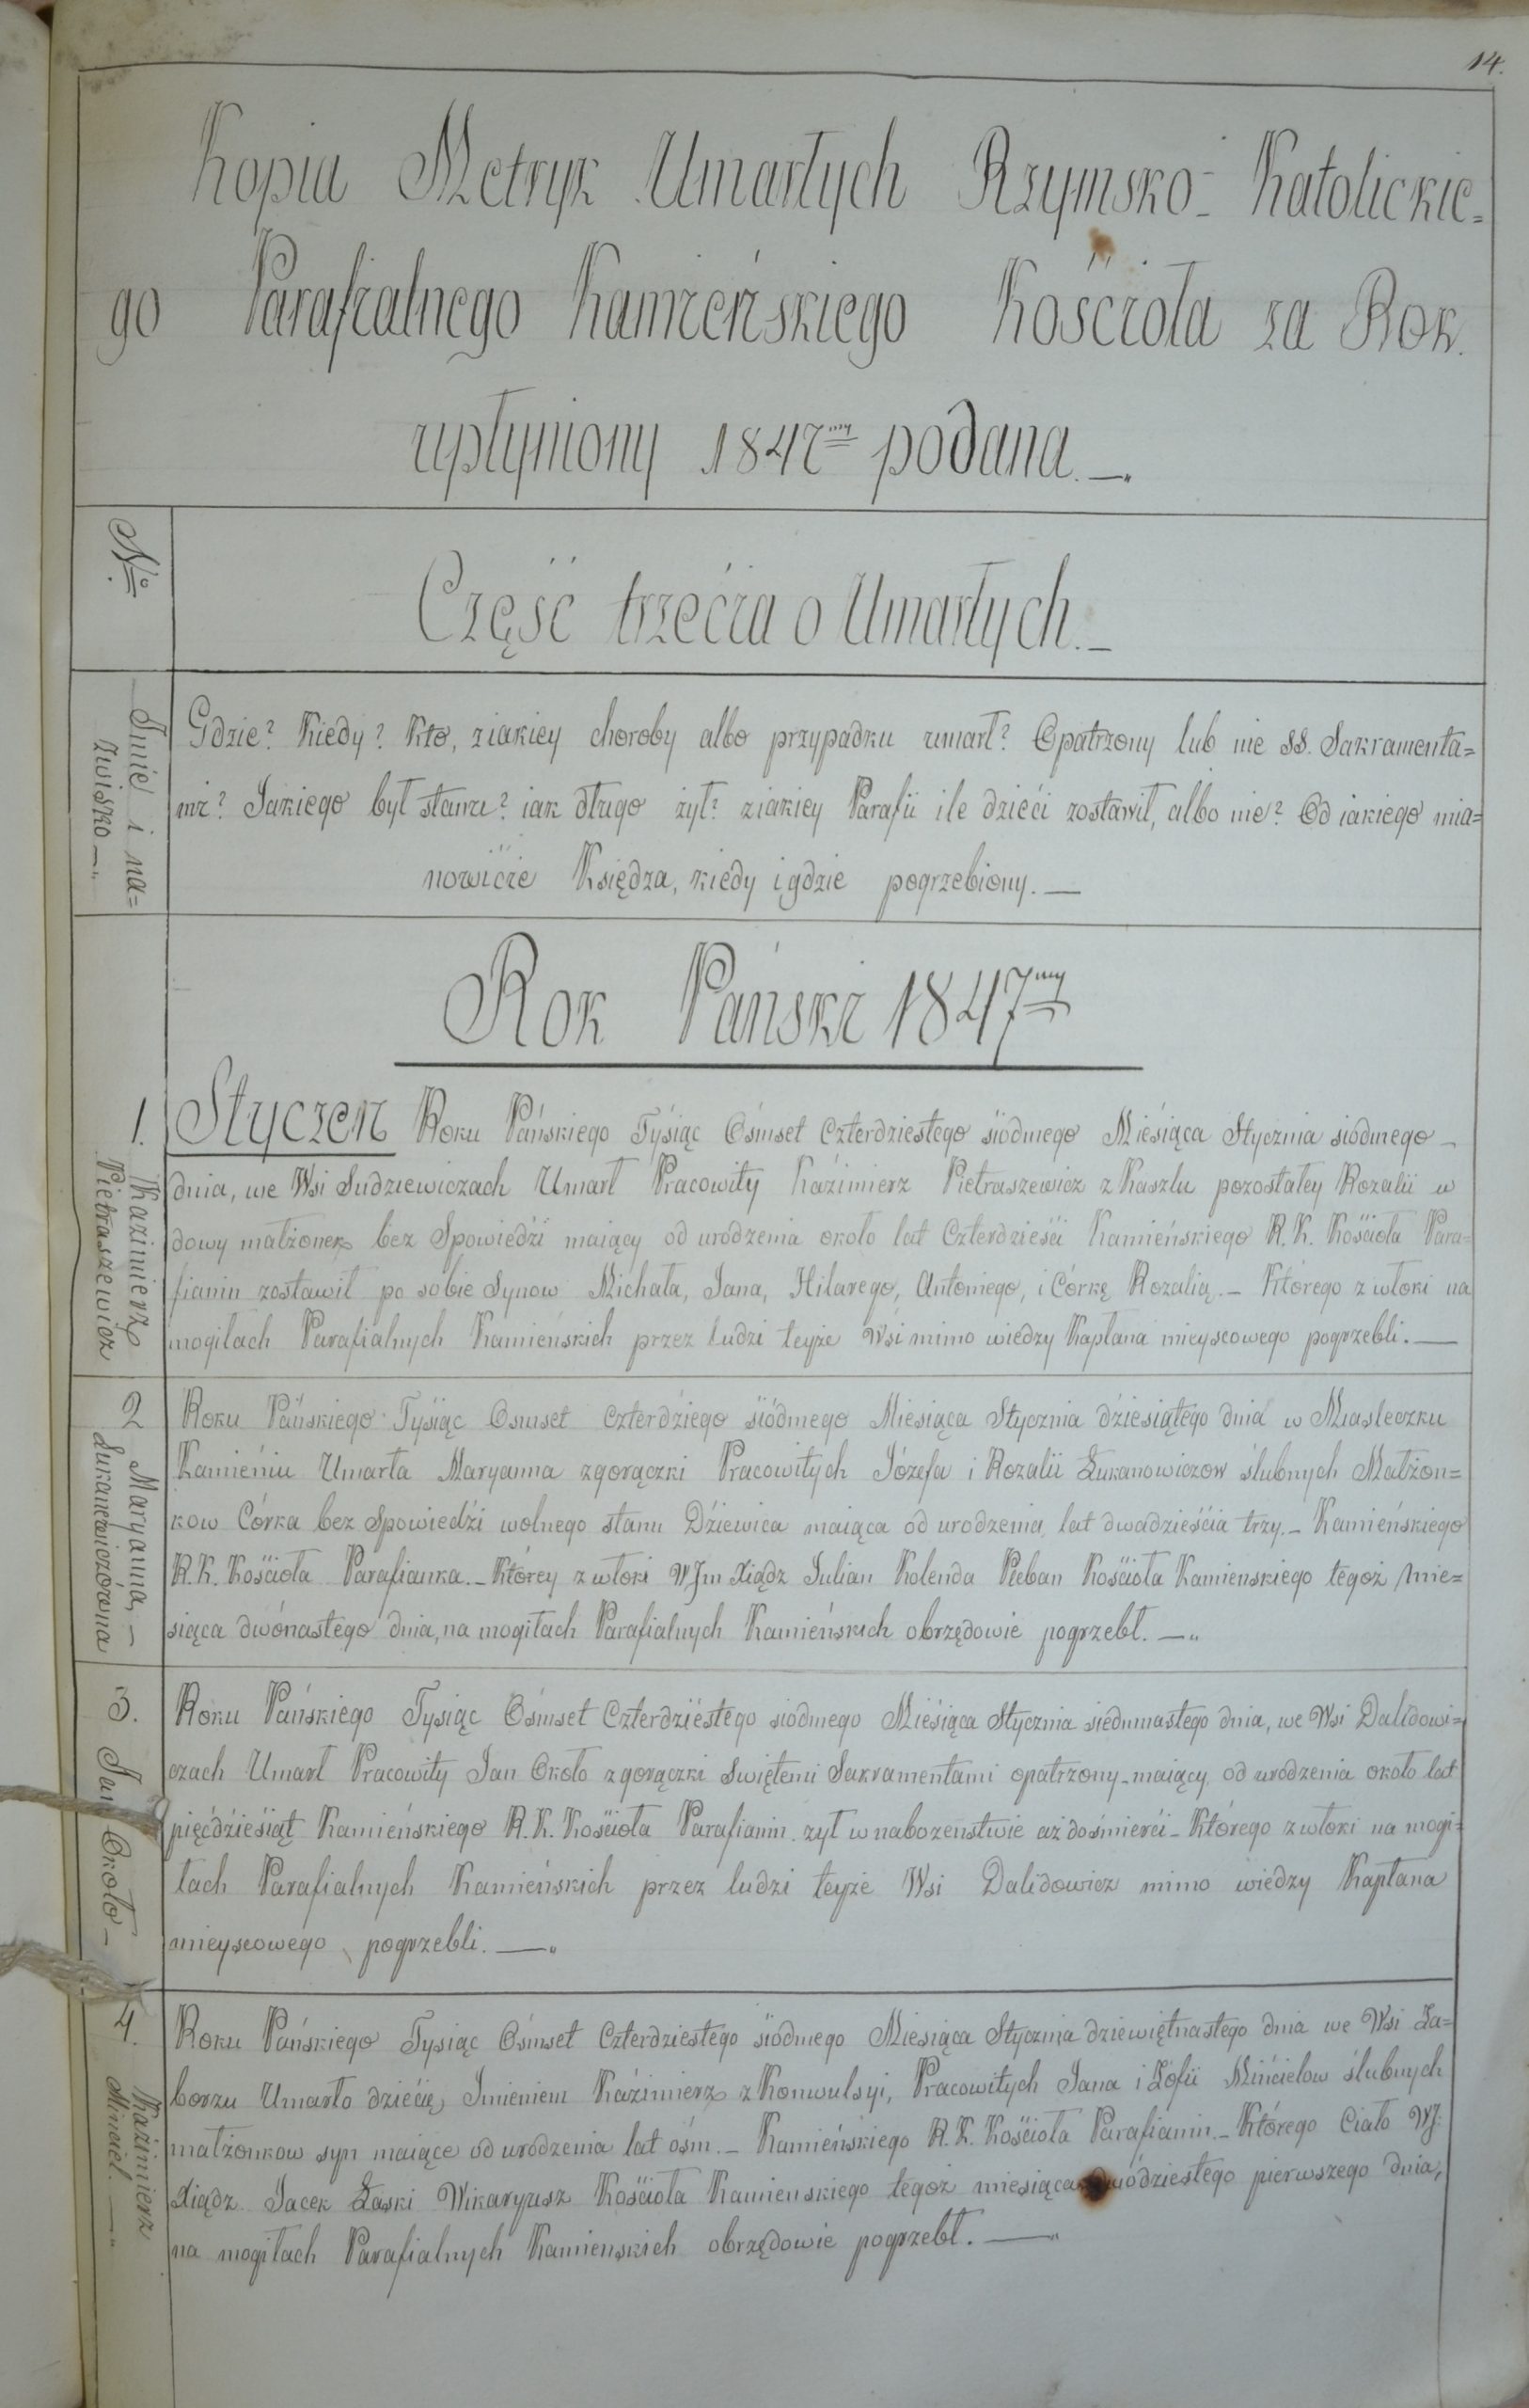 14.
Kopia Metryk Umarłych Rzymsko-Katolickie=
go Parafialnego Kamieńskiego Kościoła za Rok
upłyniony 1847my podana.
No
Część trzećia o Umarłych.
Imie i na=
zwisko
Gdzie? Kiedy? Kto, ziakiey choroby albo przypadku umarł? Opatrzony lub nie SS. Sakramenta=
mi? Jakiego był stanu? iak długo żył? ziakiey Parafii ile dzieći zostawił, albo nie? Od iakiego mia=
nowićie Księdza, kiedy i gdzie pogrzebiony.
Rok Pański 1847my
1.
Kazimierz
Pietraszewicz
Styczeń Roku Pańskiego Tysiąc Ośmset Czterdziestego siódmego Miesiąca Stycznia siódmego
dnia, we Wsi Sudziewiczach Umarł Pracowity Kaźimierz Pietraszewicz z Kaszlu pozostałey Rozalii w
dowy małżonek bez Spowiedźi maiący od urodzenia około lat Czterdzieśći Kamieńskiego R. K. Kośćioła Para=
fianin zostawił po sobie Synow Michała, Jana, Hilarego, Antoniego, i Córkę Rozalią. Którego zwłoki na
mogiłach Parafialnych Kamieńskich przez ludzi teyże Wsi mimo wiedzy Kapłana mieyscowego pogrzebli.
2
Maryanna,
Łukanowiczówna
Roku Pańskiego Tysiąc Osmset czterdźiego siódmego Miesiąca Stycznia dźiesiątego dnia w Miasteczku
Kamieńiu Umarła Maryanna zgorączki Pracowitych Józefa i Rozalii Łukanowiczow ślubnych Małżon=
kow Córka bez Spowiedźi wolnego stanu Dźiewica maiąca od urodzenia lat dwadzieśćia trzy. Kamieńskiego
R. K. Kośćioła Parafianka. Którey zwłoki WJm Xiądz Julian Kolenda Pleban Kośćioła Kamienskiego tegoż mie=
siąca dwónastego dnia, na mogiłach Parafialnych Kamieńskich obrzędowie pogrzebł.
3.
Jan Około
Roku Pańskiego Tysiąc Ośmset Czterdźiestego siódmego Miesiąca Stycznia siedmnastego dnia, we Wsi Dalidowi=
czach Umarł Pracowity Jan Około zgorączki Swiętemi Sakramentami opatrzony maiący od urodzenia około lat
pięćdźieśiąt Kamieńskiego R. K. Kośćioła Parafianin żył w nabozenstwie aż do śmierći Którego zwłoki na mogi=
łach Parafialnych Kamieńskich przez ludzi teyże Wsi Dalidowicz mimo wiedzy Kapłana
mieyscowego pogrzebli.
4.
Kaźimierz
Minciel.
Roku Pańskiego Tysiąc Ośmset Czterdziestego siódmego Miesiąca Stycznia dziewiętnastego dnia we Wsi Za=
borzu Umarło dziećię Imieniem Kaźimierz z Konwulsyi, Pracowitych Jana i Zofii Minćielow ślubnych
małżonkow syn maiące od urodzenia lat ośm. Kamieńskiego R. K. Kośćioła Parafianin. Którego Ciało WJ.
Xiądz Jacek Łaski Wikaryusz Kośćioła Kamienskiego tegoż miesiąca dwódziestego pierwszego dnia,
na mogiłach Parafialnych Kamienskich obrzędowie pogrzebł.